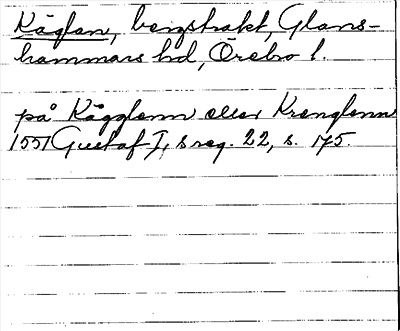 Käglan, bergstrakt, Glans-
hammars hd, Örebro l.
på Kägglenn eller Krenglenn
1551 Gustaf I,s reg. 22, s. 175.